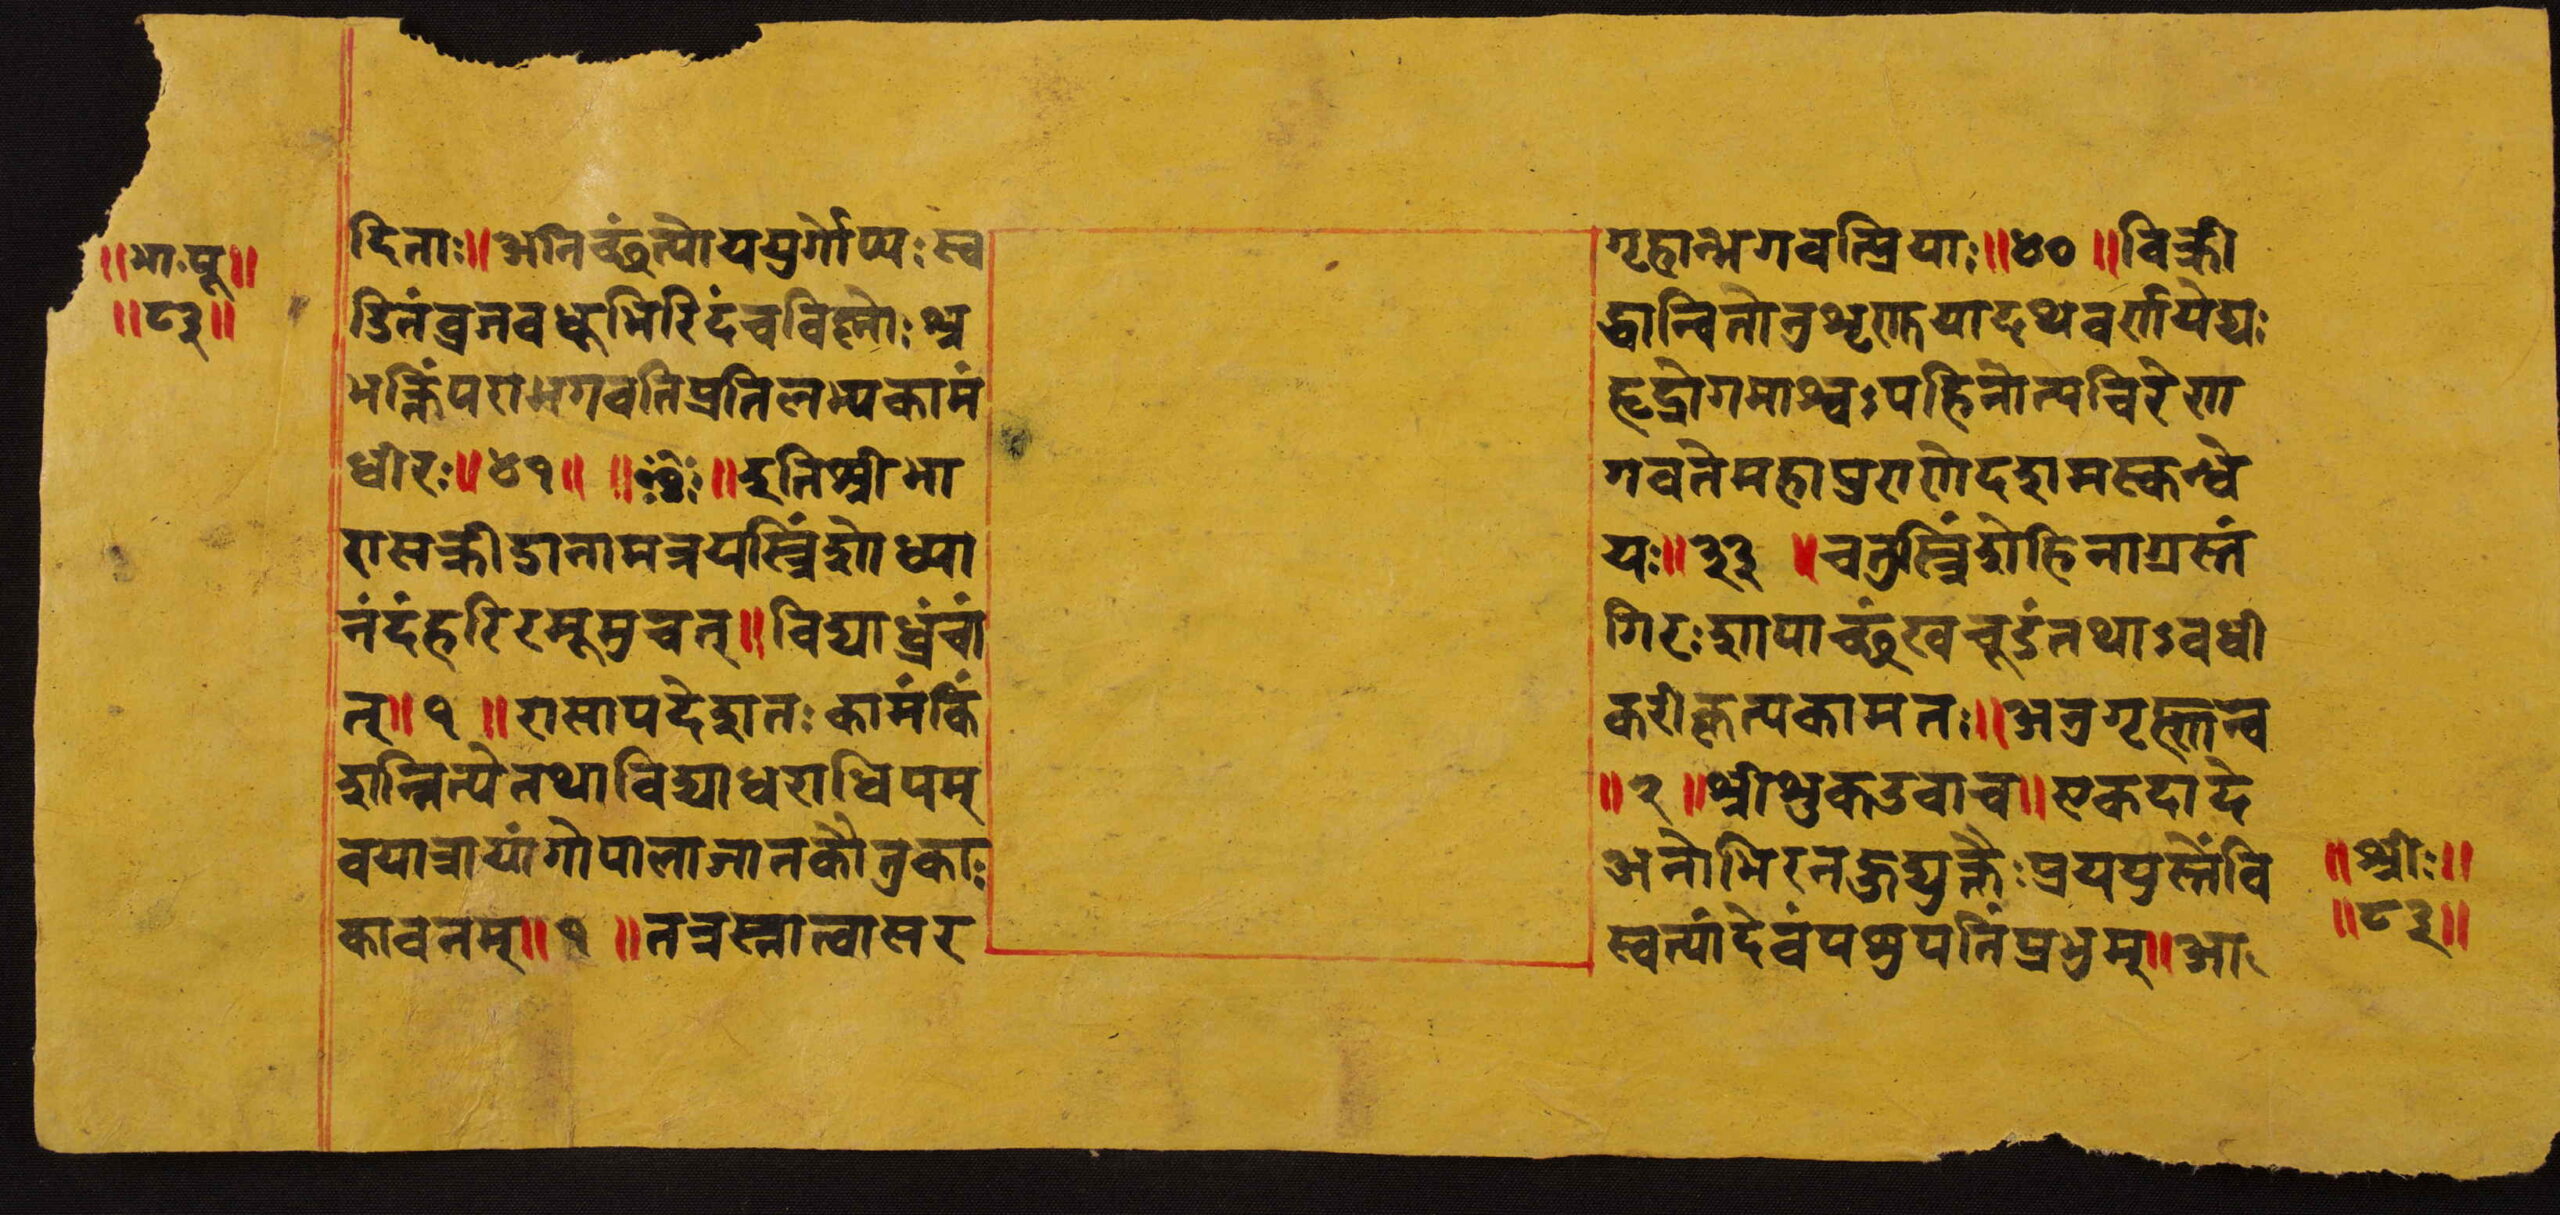 ॥भा.पू॥
॥८३॥
दिताः॥अनिच्छंत्योययुर्गोप्यःस्व गृहान्भगवत्प्रियाः॥४०॥विक्री
डितंव्रजवधूभिरिदंचविष्णोःश्र द्धान्वितोनुशृणुयादथवर्णयेद्यः
भक्तिंपरांभगवतिप्रतिलभ्यकामं हृद्रोगमाश्वऽपहिनोत्यचिरेण
धीरः॥४१॥ ॥ॐ॥इतिश्रीभा गवतेमहापुराणेदशमस्कन्धे
रासक्रीडानामत्रयस्त्रिंशोध्या यः॥३३॥चतुस्त्रिंशेहिनाग्रस्तं
नंदंहरिरमूमुचत्॥विद्याध्रंचां गिरःशापाच्छंखचूडंतथाऽवधी
त्॥१॥रासापदेशतःकामंकिं करीकृत्यकामतः॥अनुगृह्णन्व
शन्निन्येतथाविद्याधराधिपम् ॥२॥श्रीशुकउवाच॥एकदादे
वयात्रायांगोपालाजातकौतुकाः अनोभिरनडुद्युक्तैःप्रययुस्तेंवि
कावनम्॥१॥तत्रस्नात्वासर स्वत्यांदेवंपशुपतिंप्रभुम्॥आ
॥श्रीः॥
॥८३॥